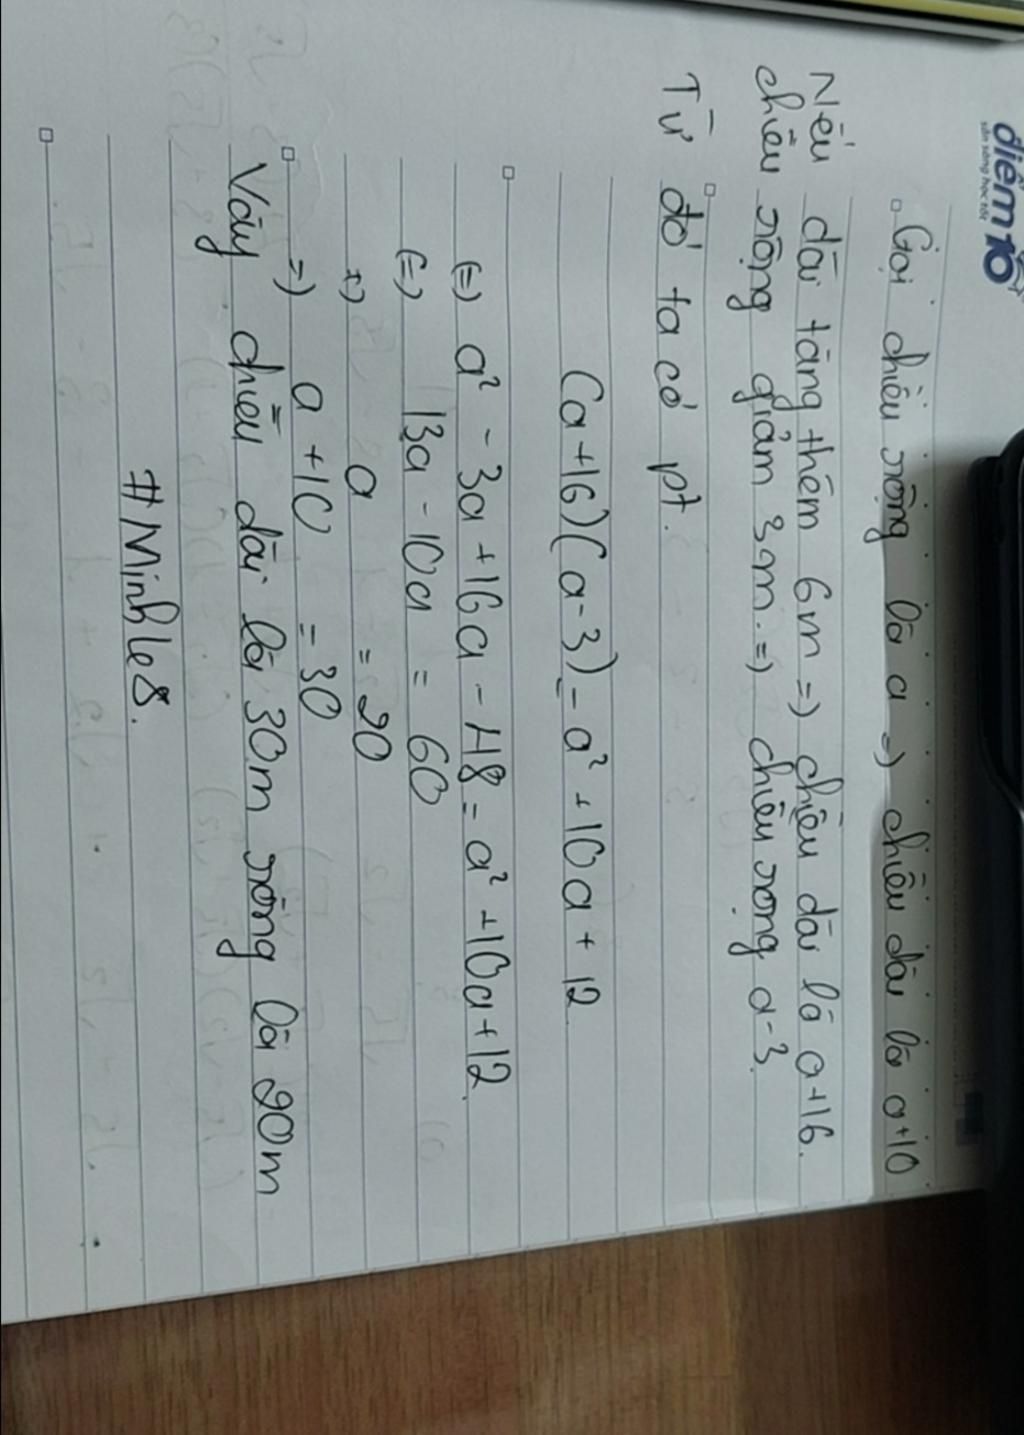 điểm 10
sẵn sàng học tốt
Gọi chiều rộng là a => chiều dài là a+10
Nếu dài tăng thêm 6m => chiều dài là a+16.
chiều rộng giảm 3m. => chiều rộng a-3
Từ đó ta có pt.
(a+16)(a-3) = a² + 10a + 12
(=) a² - 3a + 16a - 48 = a² + 10a + 12
(=) 13a - 10a = 60
a = 20
=) a + 10 = 30
Vậy chiều dài là 30m rộng là 20m
#Minhle8.